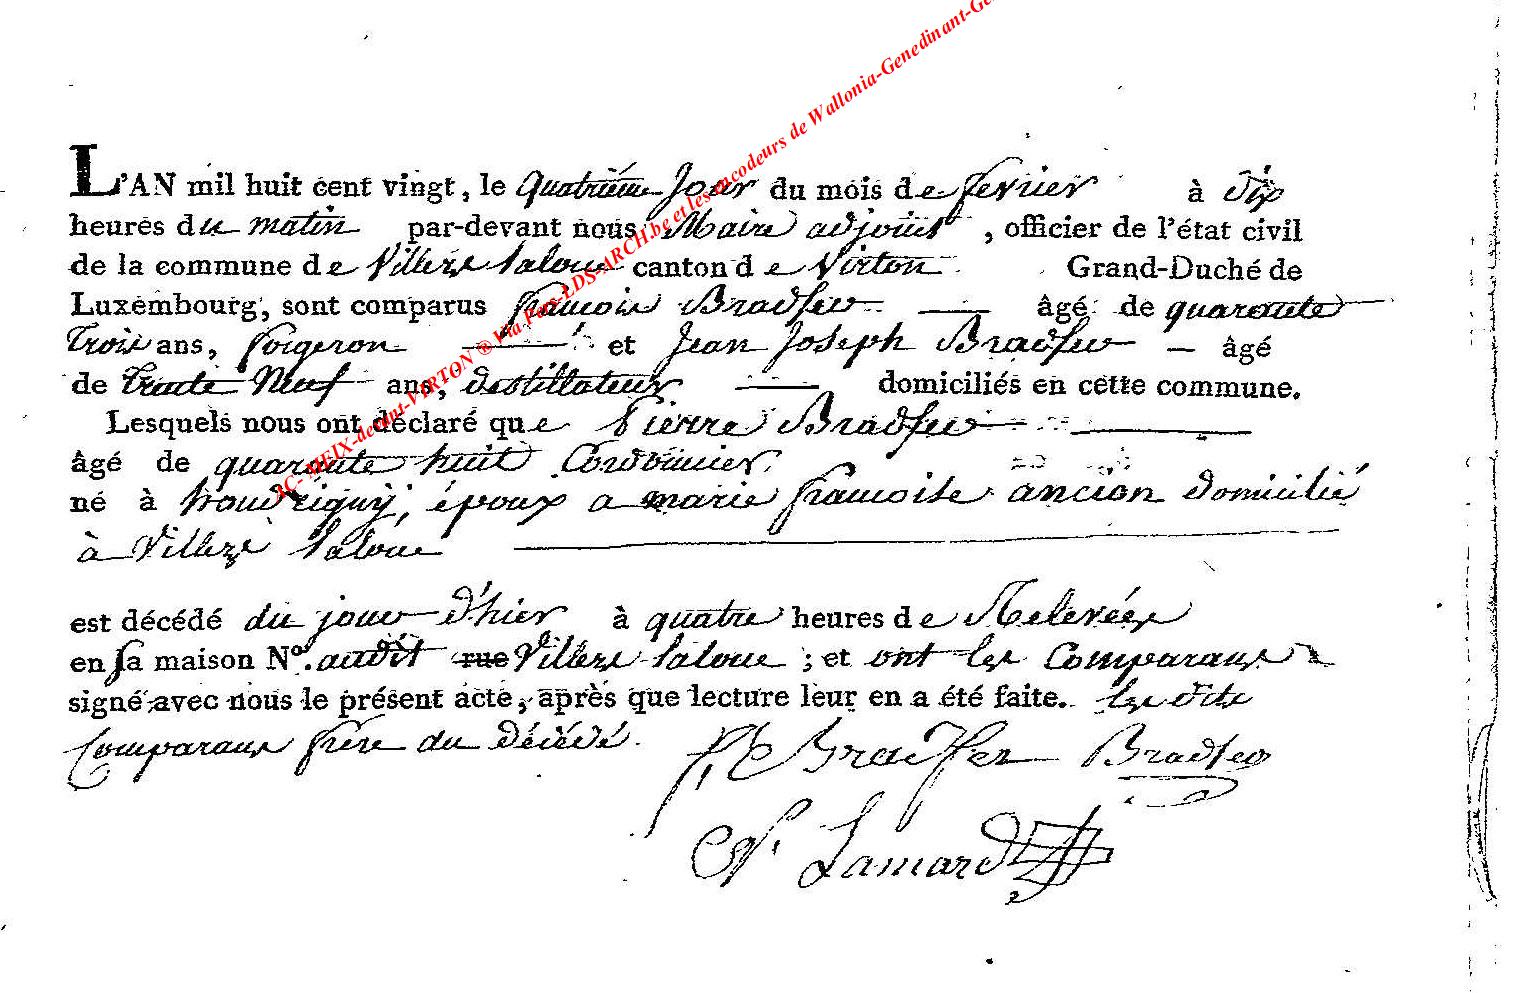 L'AN mil huit cent vingt, le quatriéme jour du mois de fevrier à dix
heures du matin par-devant nous Maire adjoint, officier de l'état civil
de la commune de Villers laloue canton de Virton Grand-Duché de
Luxembourg, sont comparus francois Bradfer âgé de quarante
trois ans, forgeron et Jean Joseph Bradfer âgé
de trente Neuf ans, destillateur domiciliés en cette commune.
Lesquels nous ont déclaré que Pierre Bradfer
âgé de quarante huit Cordonnier
né à houdrigny, époux a marie francoise ancion domicilié
à Villers laloue
est décédé du jour d'hier à quatre heures de Relevées
en sa maison N°. audit rue Villers laloue ; et ont les Comparans
signé avec nous le présent acte, après que lecture leur en a été faite. les dits
Comparans frere du décédé.
Bradfer Bradfer
Lamard
3C- MEIX-devant-VIRTON ® Via Fen-LDS-ARCH.be et les encodeurs de Wallonia-Genedinant-Ge